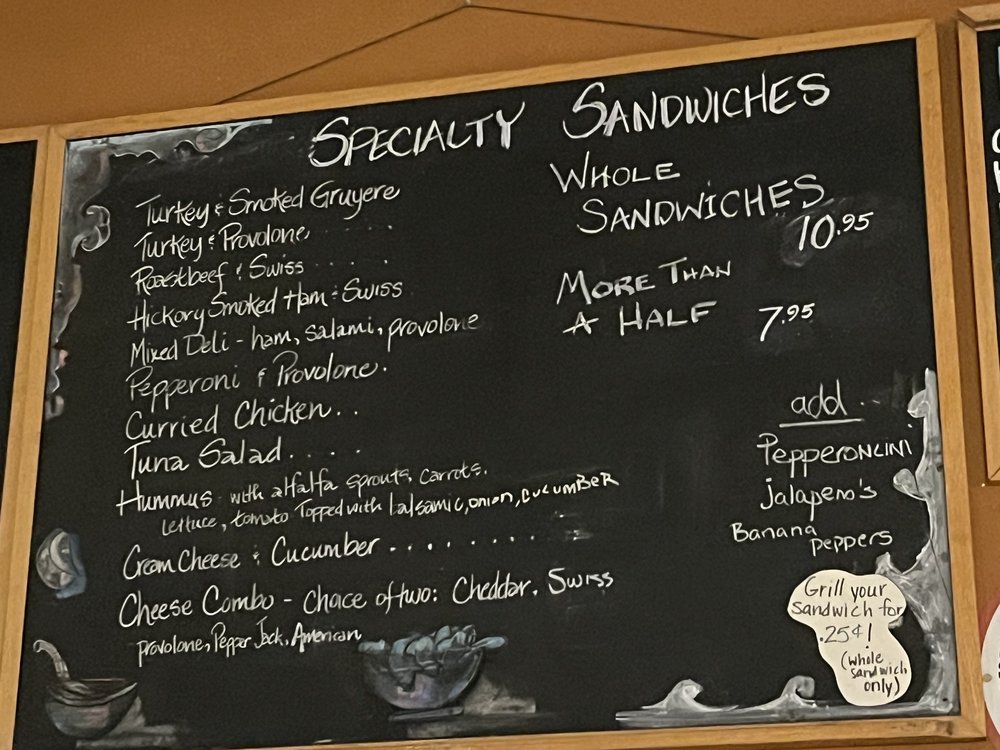 SPECIALTY SANDWICHES
Turkey & Smoked Gruyere
Turkey & Provolone . . . . .
Roastbeef & Swiss . . . . .
Hickory Smoked Ham & Swiss
Mixed Deli - ham, salami, provolone
Pepperoni & Provolone.
Curried Chicken . .
Tuna Salad . . . .
Hummus with alfalfa sprouts, carrots,
lettuce, tomato Topped with balsamic, onion, CUCUMBER
Cream Cheese & Cucumber . . . . . . . .
Cheese Combo - Choce of two: Cheddar, Swiss
provolone, Pepper Jack, American
WHOLE
SANDWICHES
10.95
MORE THAN
A HALF 7.95
add
PEPPERONCINI
jalapeno's
Banana
peppers
Grill your
Sandwich for
.25¢!
(whole
sandwich
only)